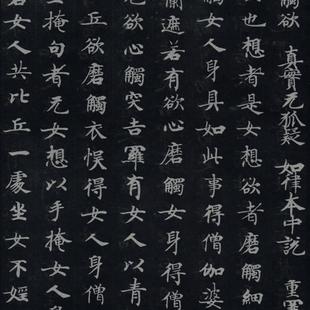 觸欲 真實无狐疑 如律本中説 重
也想者是女想欲者磨觸細
觸女人身具如此事得僧伽婆
蘭遮若有欲心磨觸女身得僧
欲心觸突吉羅有女人以青
丘欲磨觸衣悮得女人身僧
掩句者无女想以手掩女人
女人共比丘一處坐女不婬